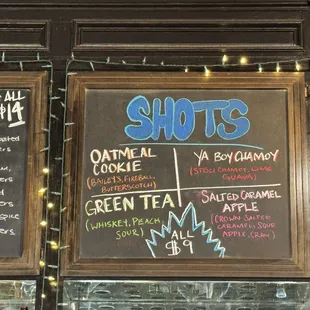 ALL
$14
SHOTS
OATMEAL
COOKIE
(BAILEYS, FIREBALL,
BUTTERSCOTCH)
YA BOY CHAMOY
(STOLI CHAMOY, LIME
GUAVA)
GREEN TEA
(WHISKEY, PEACH,
SOUR)
SALTED CARAMEL
APPLE
(CROWN SALTED
CARAMEL, SOUR
APPLE, CRAN)
ALL
$9